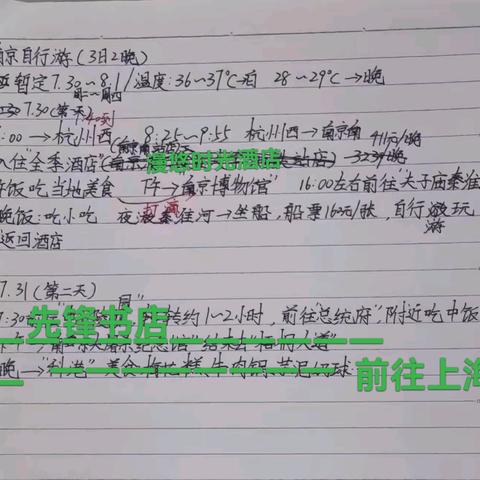 京自行游(3日2晚)
暂定7.30~8.1/温度:36~37℃白 28~29℃→晚
周二~周四
7.30(第一天)
:00→杭州西 8:25~9:55 杭州西→南京南
411元/晚
入住"全季酒店" 漫悠时光酒店 店)
饭吃当地美食 下午→南京博物馆" 16:00左右前往"夫子庙秦淮
打滴
晚饭:吃小吃 夜游秦淮河→坐船,船票160元/张,自行游玩
返回酒店
7.31(第二天)
:30 先锋书店 转约1~2小时,前往"总统府",附近吃中饭
晚→"科巷"美食 梅花糕,牛肉锅 芋泥奶球 前往上海